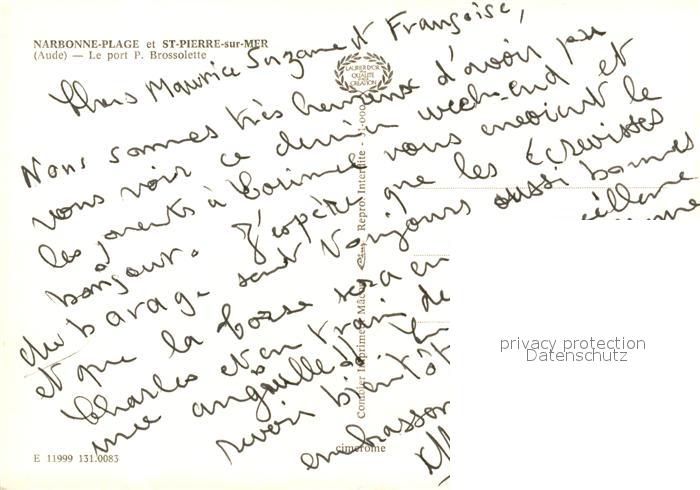 NARBONNE-PLAGE et ST-PIERRE-sur-MER
(Aude) — Le port P. Brossolette
LAURIER D'OR
QUALITÉ
CRÉATION
Chers Maurice Suzanne et Françoise,
Nous sommes très heureux d'avoir pu
vous voir ce dernier week-end et
les parents à Corinne vous envoient le
bonjour. J'espère que les écrevisses
du barage sont toujours aussi bonnes
et que la
sera en
Charles et en train de
une anguille
revoir bientôt
embrassons
Combier Imprimeur Mâcon
Repro. Interdite - 71-000
cim
E 11999 131.0083
privacy protection
Datenschutz